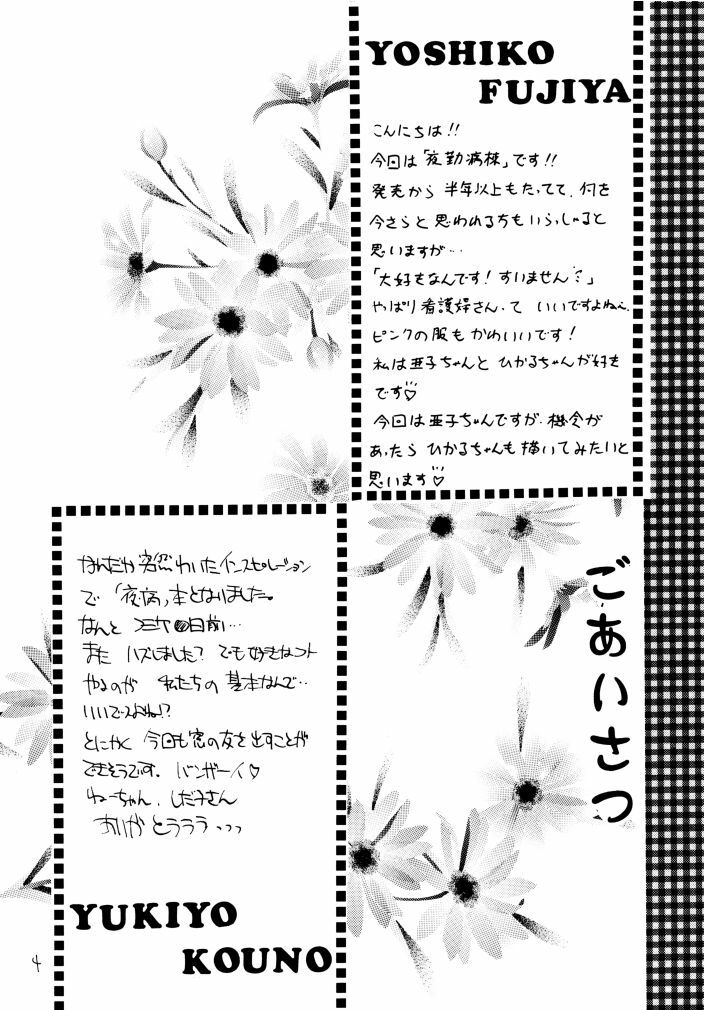 YOSHIKO
FUJIYA
こんにちは!!
今回は「夜勤病棟」です!!
発売から 半年以上もたってて、何を
今さらと思われる方もいらっしゃると
思いますが…
「大好きなんです!すいません」
やっぱり看護婦さんって いいですよねぇ
ピンクの服も かわいいです!
私は亜子ちゃんと ひかるちゃんが好き
です♡
今回は亜子ちゃんですが、機会が
あったら ひかるちゃんも描いてみたいと
思います♡
ごあいさつ
なんだか突然わいたインスピレーション
で 「夜病」本となりました。
なんと コミケ 日前…
また ハズしました? でも好きなコト
やるのが 私たちの 基本なんで…
いいですよね!?
とにかく 今回も窓の友を出すことが
できそうです。バンザーイ♡
ねーちゃん、しだ子さん
ありがとうううう…
YUKIYO
KOUNO
4